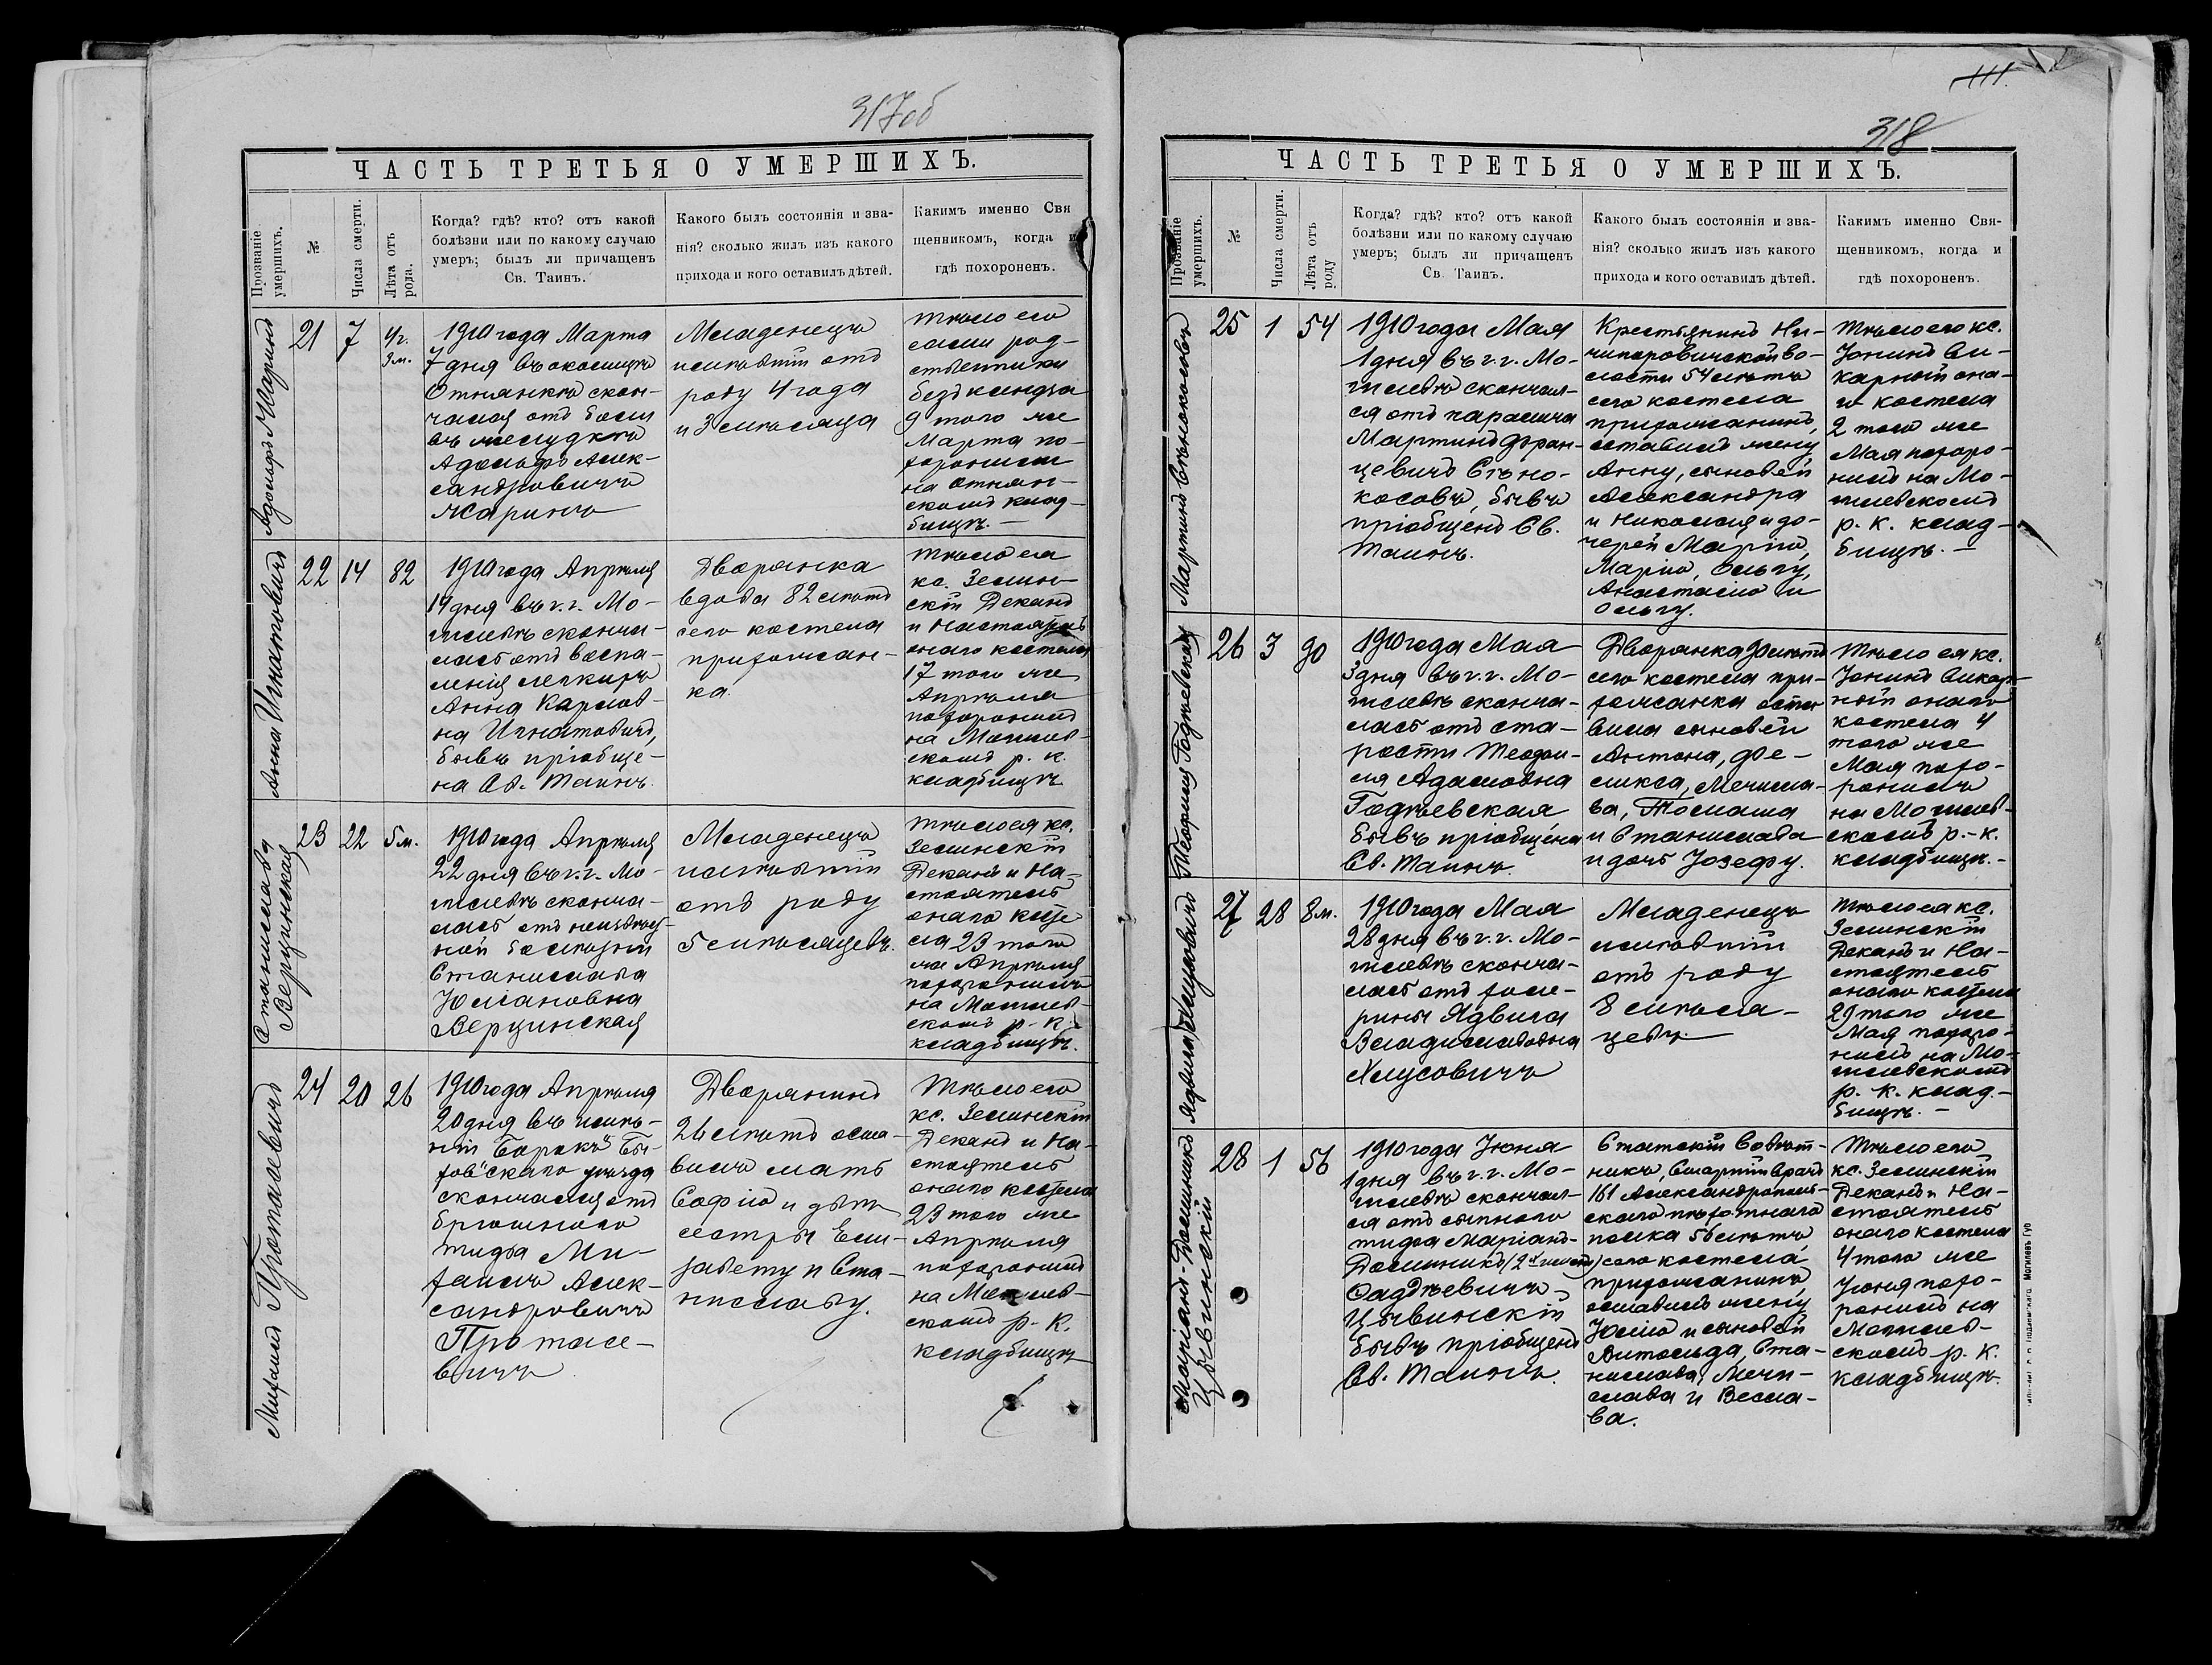 317об
ЧАСТЬ ТРЕТЬЯ О УМЕРШИХЪ.
Прозваніе умершихъ.
№
Числа смерти.
Лѣта отъ рода.
Когда? гдѣ? кто? отъ какой
болѣзни или по какому случаю
умеръ; былъ ли причащенъ
Св. Таинъ.
Какого былъ состоянія и зва-
нія? сколько жилъ изъ какого
прихода и кого оставилъ дѣтей.
Какимъ именно Свя
щенникомъ, когда и
гдѣ похороненъ.
Адольфъ Жаринъ
21
7
4г.
3м.
1910 года Марта
7 дня въ околицѣ
Отнянкѣ скон-
чался отъ боли
въ желудкѣ
Адольфъ Алек-
сандровичъ
Жаринъ
Младенецъ
имѣвшій отъ
роду 4 года
и 3 мѣсяца
Тѣло его
сами род-
ственники
безъ ксендза
9 того же
Марта по-
хоронили
на Отнян-
скомъ клад-
бищѣ. —
Анна Игнатовичъ
22
14
82
1910 года Апрѣля
14 дня въ г. г. Мо-
гилевѣ сконча-
лась отъ воспа-
ленія легкихъ
Анна Карлов-
на Игнатовичъ,
бывъ пріобще-
на Св. Таинъ.
Дворянка
вдова 82 лѣтъ
сего костела
прихожан-
ка.
Тѣло ея
кс. Землин-
скій Деканъ
и Настоятель
онаго костела
17 того же
Апрѣля
похоронилъ
на Могилев-
скомъ р. к.
кладбищѣ
Станислава
Верцинская
23
22
5м.
1910 года Апрѣля
22 дня въ г. г. Мо-
гилевѣ сконча-
лась отъ неизвѣст-
ной болѣзни
Станислава
Юліановна
Верцинская
Младенецъ
имѣвшій
отъ роду
5 мѣсяцевъ.
Тѣло ея кс.
Землинскій
Деканъ и На-
стоятель
онаго косте
ла 23 того
же Апрѣля
похоронилъ
на Могилев-
скомъ р.-к.
кладбищѣ.
Михаилъ Протасевичъ
24
20
26
1910 года Апрѣля
20 дня въ имѣ-
ніи "Борокъ" Бы-
ховскаго уѣзда
скончался отъ
брюшного
тифа Ми-
хаилъ Алек-
сандровичъ
Протасе-
вичъ
Дворянинъ
26 лѣтъ оста-
вилъ мать
Софію и двѣ
сестры Ели-
завету и Ста-
ниславу.
Тѣло его
кс. Землинскій
Деканъ и На-
стоятель
онаго костела
23 того же
Апрѣля
похоронилъ
на Могилев-
скомъ р.-к.
кладбищѣ
111.
318
ЧАСТЬ ТРЕТЬЯ О УМЕРШИХЪ.
Прозваніе умершихъ.
№
Числа смерти.
Лѣта отъ роду
Когда? гдѣ? кто? отъ какой
болѣзни или по какому случаю
умеръ; былъ ли причащенъ
Св. Таинъ.
Какого былъ состоянія и зва-
нія? сколько жилъ изъ какого
прихода и кого оставилъ дѣтей.
Какимъ именно Свя-
щенникомъ, когда и
гдѣ похороненъ.
Мартинъ Сѣнокосовъ
25
1
54
1910 года Мая
1 дня въ г. г. Мо-
гилевѣ скончал-
ся отъ паралича
Мартинъ Фран-
цевичъ Сѣно-
косовъ, бывъ
пріобщенъ Св.
Таинъ.
Крестьянинъ Ни-
чипоровичской во-
лости 54 лѣтъ
сего костела
прихожанинъ,
оставилъ жену
Анну, сыновей
Александра
и Николая и до-
черей Марію,
Марію, Ольгу,
Анастасію и
Ольгу.
Тѣло его кс.
Іонинъ Ви-
карный она-
го костела
2 того же
Мая похоро-
нилъ на Мо-
гилевскомъ
р. к. клад-
бищѣ. —
Теофилія Годлевская
26
3
90
1910 года Мая
3 дня въ г. г. Мо-
гилевѣ сконча-
лась отъ ста-
рости Теофи-
ля Адамовна
Годлевская
бывъ пріобщена
Св. Таинъ.
Дворянка 90 лѣтъ
сего костела при-
хожанка оста
вила сыновей
Антона, Фе-
ликса, Мечисла-
ва, Томаша
и Станислава
и дочь Іозефу.
Тѣло ея кс.
Іонинъ Викар-
ный онаго
костела 4
того же
Мая похо-
ронилъ
на Могилев-
скомъ р.-к.
кладбищѣ.-
Ядвига Хлусовичъ
27
28
8м.
1910 года Мая
28 дня въ г. г. Мо-
гилевѣ сконча-
лась отъ холе-
рины Ядвига
Владиславовна
Хлусовичъ
Младенецъ
имѣвшій
отъ роду
8 мѣся-
цевъ
Тѣло ея кс.
Землинскій
Деканъ и На-
стоятель
онаго костела
29 того же
Мая похоро-
нилъ на Мо-
гилевскомъ
р. к. клад-
бищѣ. —
Маріанъ-Доминикъ
Цывинскій
28
1
56
1910 года Іюня
1 дня въ г. г. Мо-
гилевѣ скончал-
ся отъ сыпного
тифа Маріанъ-
Доминикъ (2хъ именъ)
Фаддѣевичъ
Цывинскій
бывъ пріобщенъ
Св. Таинъ.
Статскій Совѣт-
никъ, Старшій врачъ
161 Александрополь-
скаго пѣхотнаго
полка 56 лѣтъ
сего костела
прихожанинъ,
оставилъ жену
Юлію и сыновей
Витольда, Ста-
нислава, Мечи-
слава и Весла-
ва.
Тѣло его
кс. Землинскій
Деканъ и На-
стоятель
онаго костела
4 того же
Іюня похо-
ронилъ на
Могилев-
скомъ р. к.
кладбищѣ.
Могилевъ Губ